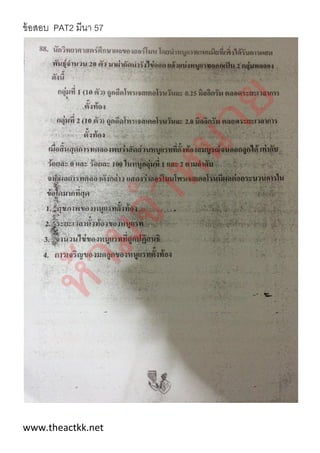 ข้อสอบ PAT2 มีนา 57
88. นักวิทยาศาสตร์ศึกษาผลของฮอร์โมน โดยนำหนูแรทเพศเมียที่เพิ่งได้รับการผสม
พันธุ์จำนวน 20 ตัว มาผ่าตัดนำรังไข่ออก แล้วแบ่งหนูแรทออกเป็น 2 กลุ่มทดลอง
ดังนี้
กลุ่มที่ 1 (10 ตัว) ถูกฉีดโพรเจสเตอโรนวันละ 0.25 มิลลิกรัม ตลอดระยะเวลาการ
ตั้งท้อง
กลุ่มที่ 2 (10 ตัว) ถูกฉีดโพรเจสเตอโรนวันละ 2.0 มิลลิกรัม ตลอดระยะเวลาการ
ตั้งท้อง
เมื่อสิ้นสุดการทดลองพบว่าสัดส่วนหนูแรทที่ตั้งท้องสมบูรณ์จนออกลูกได้ เท่ากับ
ร้อยละ 0 และ ร้อยละ 100 ในหนูกลุ่มที่ 1 และ 2 ตามลำดับ
จากผลการทดลองดังกล่าว แสดงว่าฮอร์โมนโพรเจสเตอโรนมีผลต่อกระบวนการใน
ข้อใดมากที่สุด
1. สุขภาพของหนูแรทตั้งท้อง
2. ระยะเวลาตั้งท้องของหนูแรท
3. จำนวนไข่ของหนูแรทที่ถูกปฏิสนธิ
4. การเจริญของมดลูกของหนูแรทตั้งท้อง
ห้ามจำหน่าย
www.theactkk.net